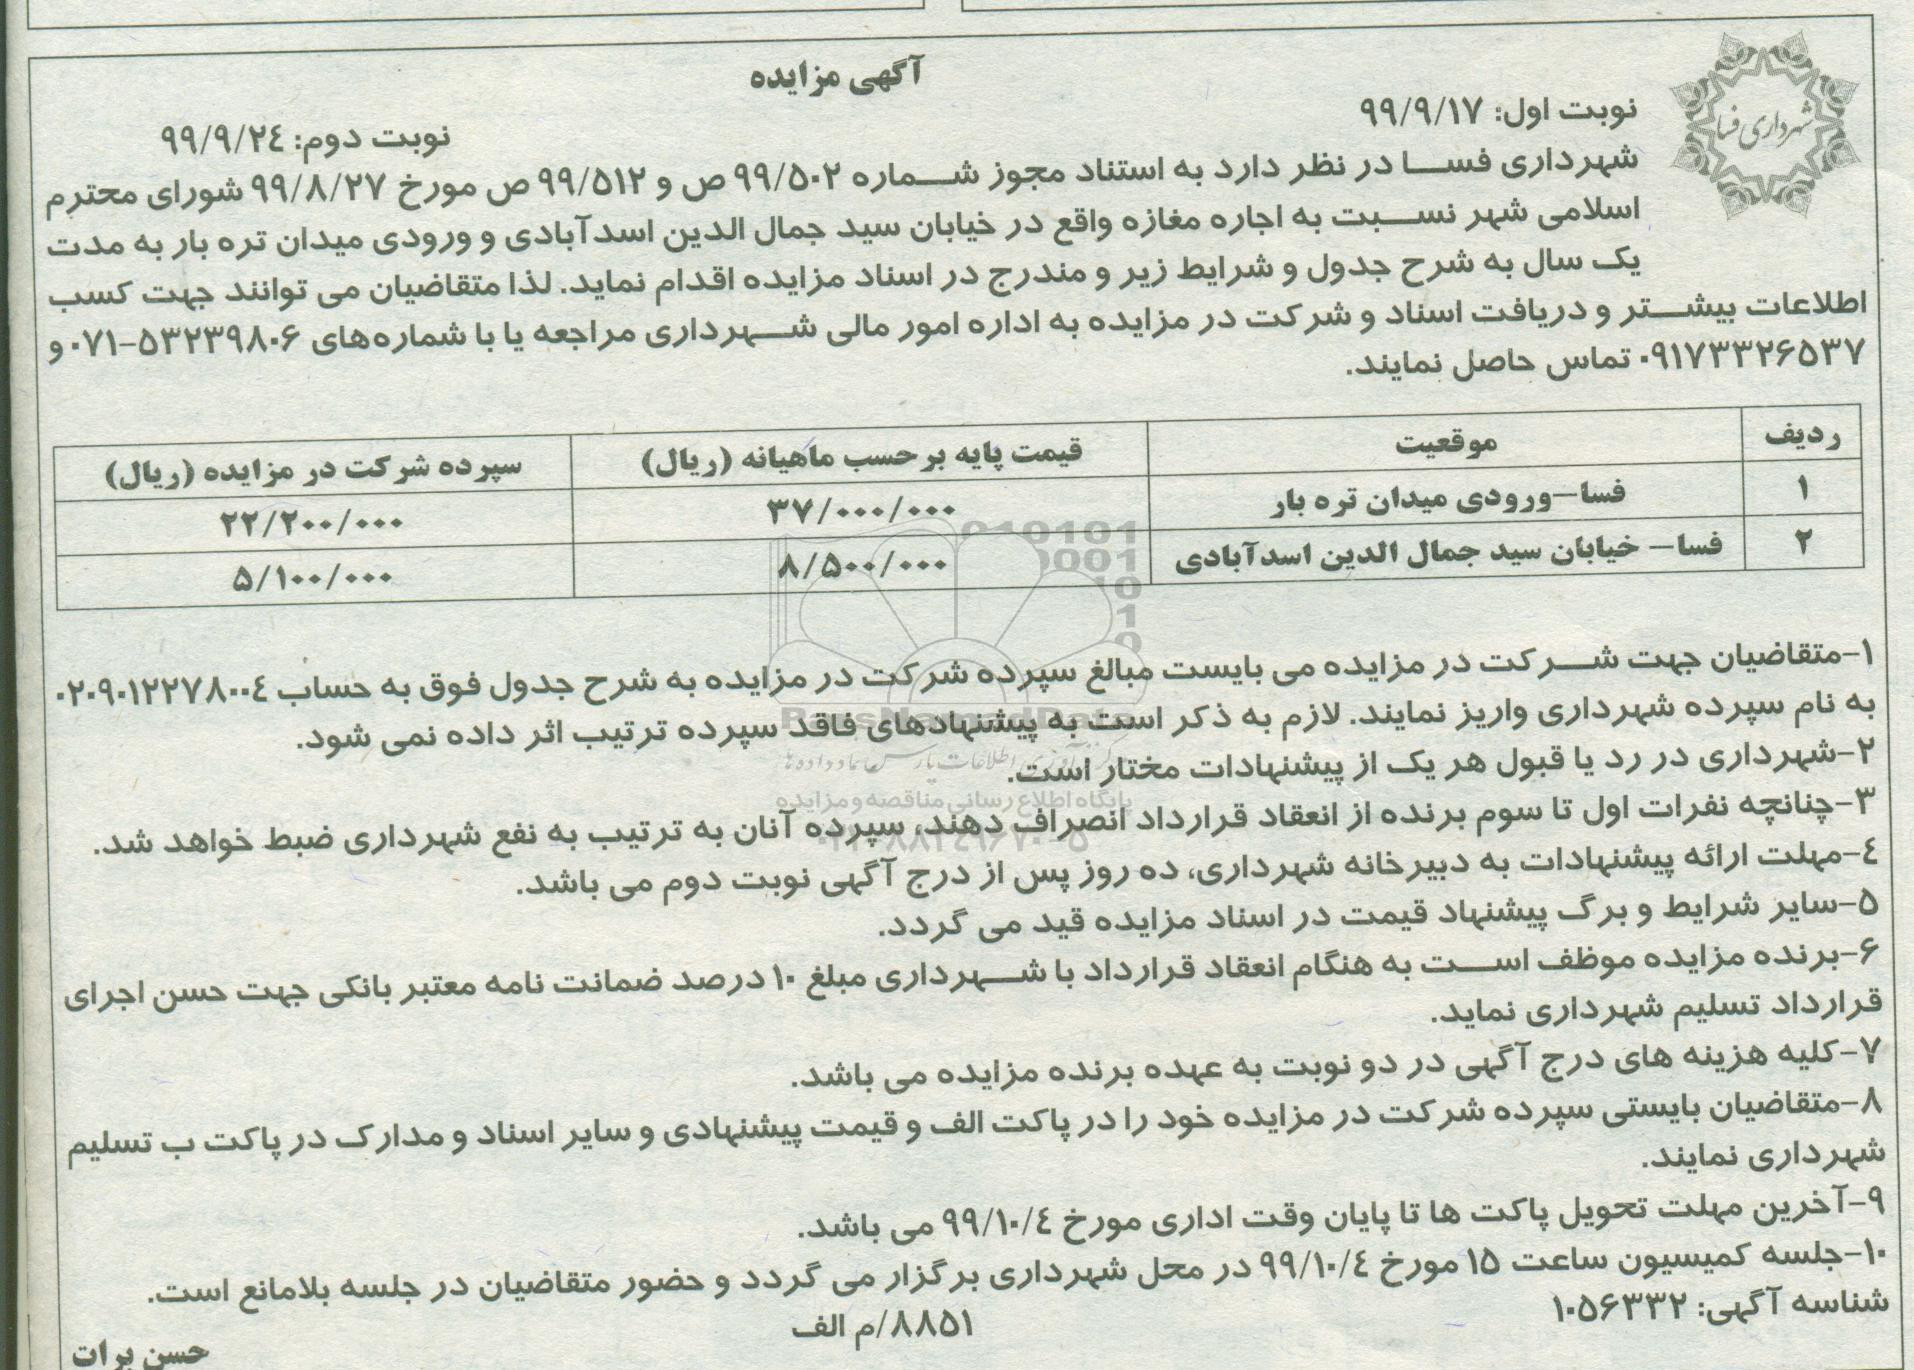 آگهی مزایده
شهرداری فسا
نوبت اول: ۹۹/۹/۱۷
نوبت دوم: ۹۹/۹/۲٤
شهرداری فسا در نظر دارد به استناد مجوز شماره ۹۹/۵۰۲ ص و ۹۹/۵۱۲ ص مورخ ۹۹/۸/۲۷ شورای محترم
اسلامی شهر نسبت به اجاره مغازه واقع در خیابان سید جمال الدین اسدآبادی و ورودی میدان تره بار به مدت
یک سال به شرح جدول و شرایط زیر و مندرج در اسناد مزایده اقدام نماید. لذا متقاضیان می توانند جهت کسب
اطلاعات بیشتر و دریافت اسناد و شرکت در مزایده به اداره امور مالی شهرداری مراجعه یا با شماره‌های ۵۳۲۳۹۸۰۶-۰۷۱ و
۰۹۱۷۳۳۲۶۵۳۷ تماس حاصل نمایند.
ردیف موقعیت قیمت پایه برحسب ماهیانه (ریال) سپرده شرکت در مزایده (ریال)
۱ فسا–ورودی میدان تره بار ۳۷/۰۰۰/۰۰۰ ۲۲/۲۰۰/۰۰۰
۲ فسا– خیابان سید جمال الدین اسدآبادی ۸/۵۰۰/۰۰۰ ۵/۱۰۰/۰۰۰
۱-متقاضیان جهت شرکت در مزایده می بایست مبالغ سپرده شرکت در مزایده به شرح جدول فوق به حساب ۰۲۰۹۰۱۲۲۷۸۰۰٤
به نام سپرده شهرداری واریز نمایند. لازم به ذکر است به پیشنهادهای فاقد سپرده ترتیب اثر داده نمی شود.
۲-شهرداری در رد یا قبول هر یک از پیشنهادات مختار است.
۳-چنانچه نفرات اول تا سوم برنده از انعقاد قرارداد انصراف دهند، سپرده آنان به ترتیب به نفع شهرداری ضبط خواهد شد.
٤-مهلت ارائه پیشنهادات به دبیرخانه شهرداری، ده روز پس از درج آگهی نوبت دوم می باشد.
۵-سایر شرایط و برگ پیشنهاد قیمت در اسناد مزایده قید می گردد.
۶-برنده مزایده موظف است به هنگام انعقاد قرارداد با شهرداری مبلغ ۱۰ درصد ضمانت نامه معتبر بانکی جهت حسن اجرای
قرارداد تسلیم شهرداری نماید.
۷-کلیه هزینه های درج آگهی در دو نوبت به عهده برنده مزایده می باشد.
۸-متقاضیان بایستی سپرده شرکت در مزایده خود را در پاکت الف و قیمت پیشنهادی و سایر اسناد و مدارک در پاکت ب تسلیم
شهرداری نمایند.
۹-آخرین مهلت تحویل پاکت ها تا پایان وقت اداری مورخ ۹۹/۱۰/٤ می باشد.
۱۰-جلسه کمیسیون ساعت ۱۵ مورخ ۹۹/۱۰/٤ در محل شهرداری برگزار می گردد و حضور متقاضیان در جلسه بلامانع است.
شناسه آگهی: ۱۰۵۶۳۳۲
۸۸۵۱/م الف
حسن برات
پایگاه اطلاع رسانی مناقصه و مزایده